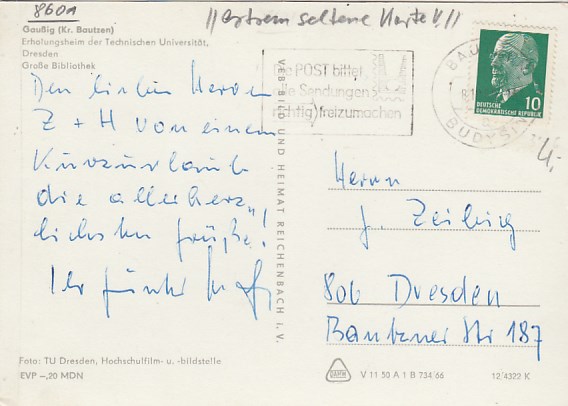 8601
// extrem seltene Karte !! //
Gaußig (Kr. Bautzen)
Erholungsheim der Technischen Universität,
Dresden
Große Bibliothek
Den lieben Herren
Z + H von einem
Kurzurlaub
die allerherz„
lichsten Grüße!
Ihr
VEB BILD UND HEIMAT REICHENBACH I. V.
Die POST bittet
alle Sendungen
richtig freizumachen
BAUTZEN
BUDYŠIN
10
DEUTSCHE
DEMOKRATISCHE REPUBLIK
4,-
Herrn
J. Zeibig
806 Dresden
Bautzner Str 187
Foto: TU Dresden, Hochschulfilm- u. -bildstelle
EVP –,20 MDN
V 11 50 A 1 B 734/66
12/4322 K